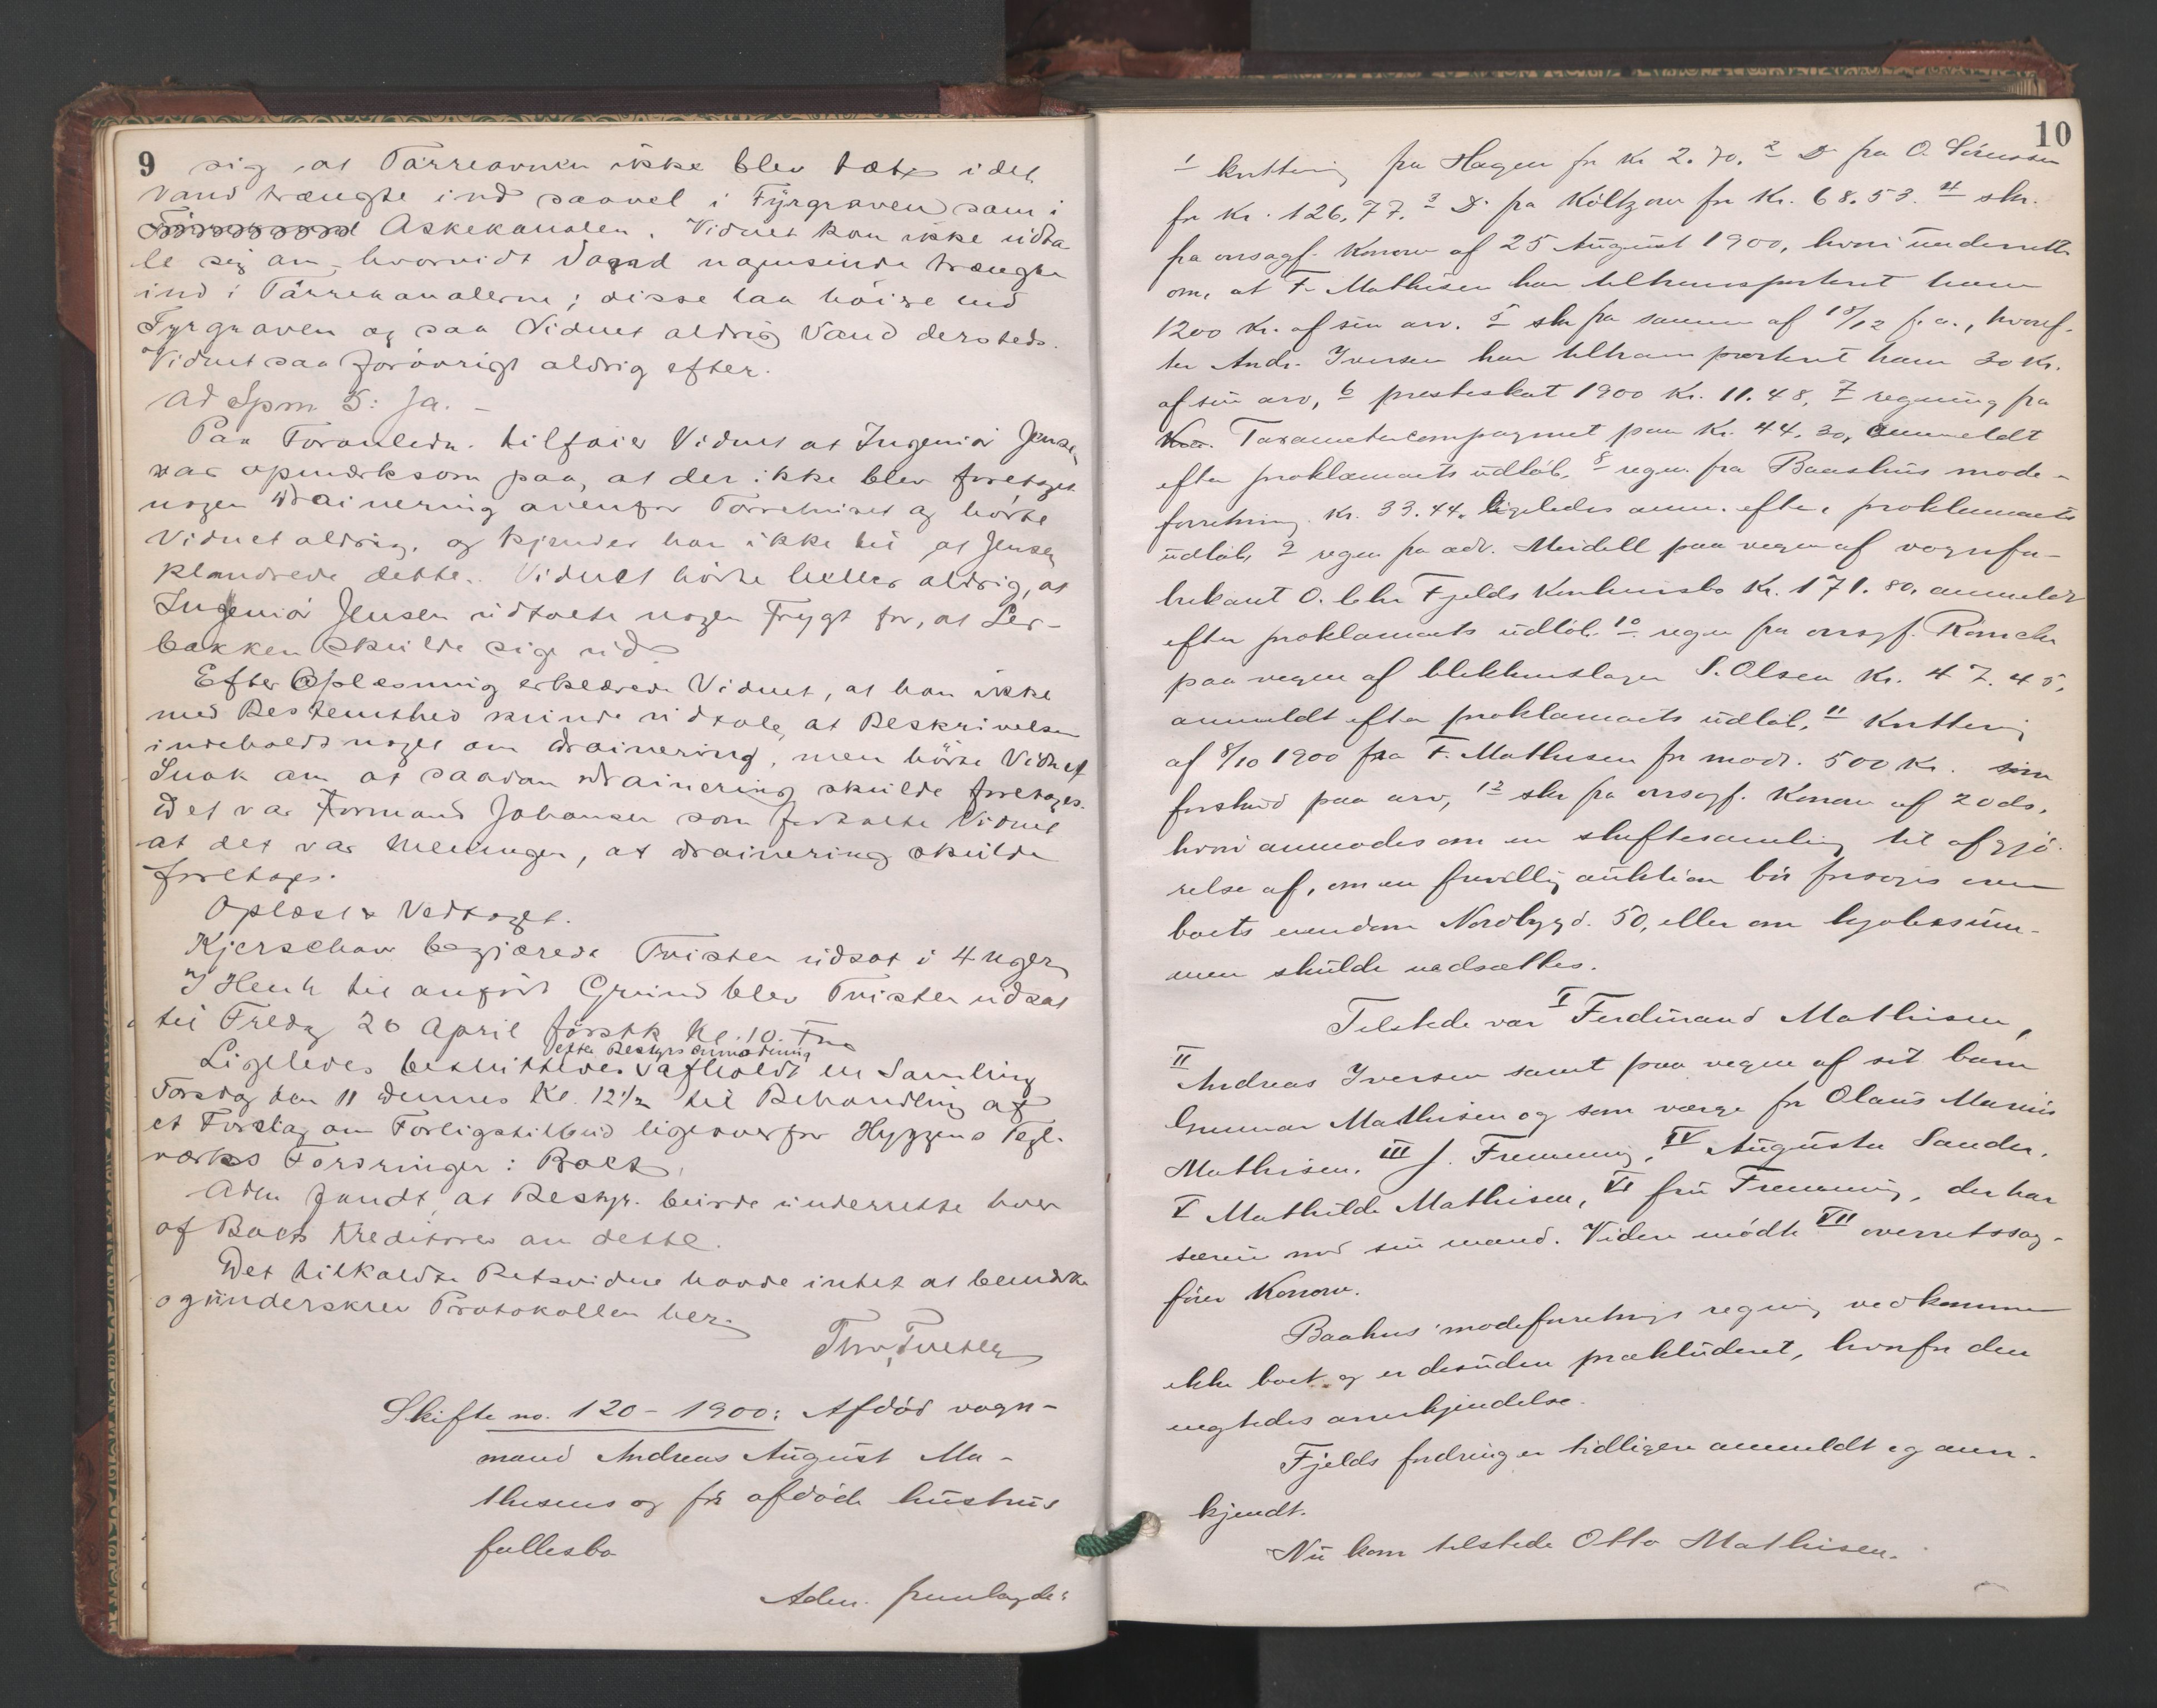 9
sig at Tørreovnen ikke blev tæt, idet
Vand trængte ind saavel i Fyrgraven som i
Askekanalen. Vidnet kan ikke udta
le sig om, hvorvidt Vand nogensinde trængte
ind i Tørrekanalerne; disse laa høiere end
Fyrgraven og saa Vidnet aldrig Vand dersteds.
Vidnet saa forøvrigt aldrig efter.
Ad Spm. 5: Ja. –
Paa Foranledn. tilføier Vidnet at Ingeniør Jensen
var opmærksom paa, at der ikke blev foretaget
nogen Drainering ovenfor Tørrehuset og hørte
Vidnet aldrig, og kjender han ikke til, at Jensen
klandrede dette. Vidnet hørte heller aldrig, at
Ingeniør Jensen udtalte nogen Frygt for, at Ler-
bakken skulde sige ud.
Efter Oplæsning erklærede Vidnet, at han ikke
med Bestemthed kunde udtale, at Beskrivelsen
indeholdt noget om Drainering, men hørte Vidnet
Snak om at saadan Drainering skulde foretages.
Det var Formand Johansen som fortalte Vidnet
at det var Meningen, at Drainering skulde
foretages.
Oplæst & Vedtaget.
Kjerschow begjærede Tvisten udsat i 4 Uger
I Henh. til anført Grund blev Tvisten udsat
til Fredag 26 April førstk. Kl. 10 Fm.
efter Bestyrs anmodning
Ligeledes besluttedes afholdt en Samling
Torsdag den 11 dennes Kl. 12½ til Behandling af
et Forslag om Forligstilbud ligeoverfor Hyggens Tegl-
værks Fordringer i Boet.
Adm. fandt, at Bestyr. burde underrette hver
af Boets Kreditorer om dette.
Det tilkaldte Retsvidne havde intet at bemærke
og underskrev Protokollen her.
Skifte no. 120 – 1900: Afdød vogn-
mand Andreas August Ma-
thisens og før afdøde hustrus
fællesbo
Adm. fremlagde:
10
1 kvittering fra Hagen for kr 2.70. 2 Do fra O. Sørensen
for kr. 126,77. 3 Do fra Költzow for kr. 68.53. 4 skr.
fra ovrsagf. Konow af 25 August 1900, hvori underrettes
om, at F. Mathisen har tiltransporteret ham
1200 kr. af sin arv. 5 skr fra samme af 18/12 f.a., hvoref-
ter Andr. Iversen har tiltransporteret ham 30 kr.
af sin arv, 6 presteskat 1900 kr. 11.48, 7 regning fra
Taxametercompagniet paa kr. 44,30, anmeldt
efter proklamaets udløb, 8 regn. fra Baashus mode-
forretning kr. 33.44. ligeledes anm. efter proklamaets
udløb, 9 regn fra adv. Meidell paa vegne af vognfa-
brikant O. Chr Fjelds konkursbo kr. 171.80, anmeldt
efter proklamaets udløb. 10 regn fra ovrsgf.
paa vegne af blikkenslager S. Olsen kr. 47.45,
anmeldt efter proklamaets udløb, 11 kvittering
af 8/10 1900 fra F. Mathisen for modt. 500 kr. som
forskud paa arv, 12 skr fra ovrsagf. Konow af 20 ds,
hvori anmodes om en skiftesamling til afgjø-
relse af, om en frivillig auktion bør forsøges over
boets eiendom Nordbygd. 50, eller om kjøbesum-
men skulde nedsættes.
Tilstede var I Ferdinand Mathisen,
II Andreas Iversen samt paa vegne af sit barn
Gunnar Mathisen og som værge for Olaus Marius
Mathisen. III J. Fremming, IV Augusta Sander.
V Mathilde Mathisen, VI fru Fremming, der har
særeie med sin mand. Videre mødte VII overretssag-
fører Konow.
Baahus' modeforretnings regning vedkommer
ikke boet og er desuden prækluderet, hvorfor den
negtedes anerkjendelse.
Fjelds fordring er tidligere anmeldt og aner-
kjendt.
Nu kom tilstede Otto Mathisen.